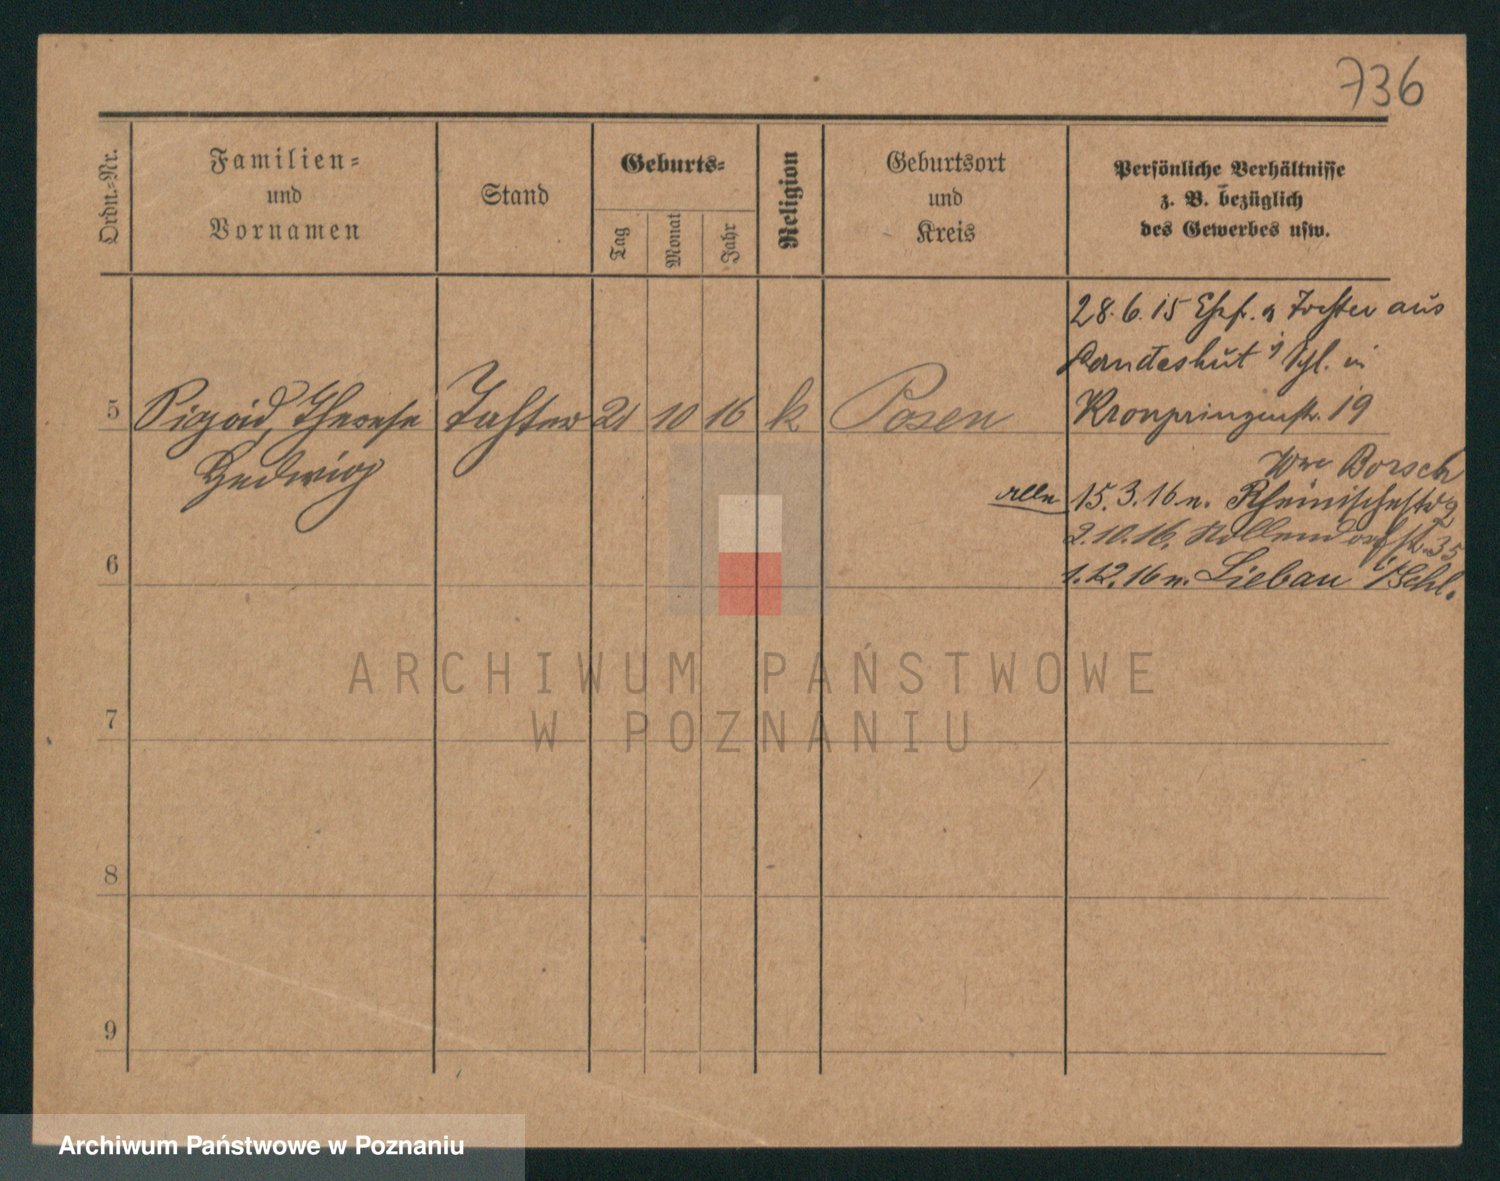 736
Ordn.-Nr.
Familien-
und
Vornamen
Stand
Geburts-
Tag
Monat
Jahr
Religion
Geburtsort
und
Kreis
Persönliche Verhältnisse
z. B. bezüglich
des Gewerbes usw.
28.6.15 Ehfr. u Tochter aus
Landeshut i/ Schl. in
Kronprinzenstr. 19
5 Therese Tochter 21 10 16 k Posen
Hedwig
Wwe Borsch
alle 15.3.16 n. Rheinischestr 9
2.10.16. Nollendorfstr. 35
1.12.16 n. Liebau i/Schl.
6
7
8
9
ARCHIWUM PAŃSTWOWE
W POZNANIU
Archiwum Państwowe w Poznaniu